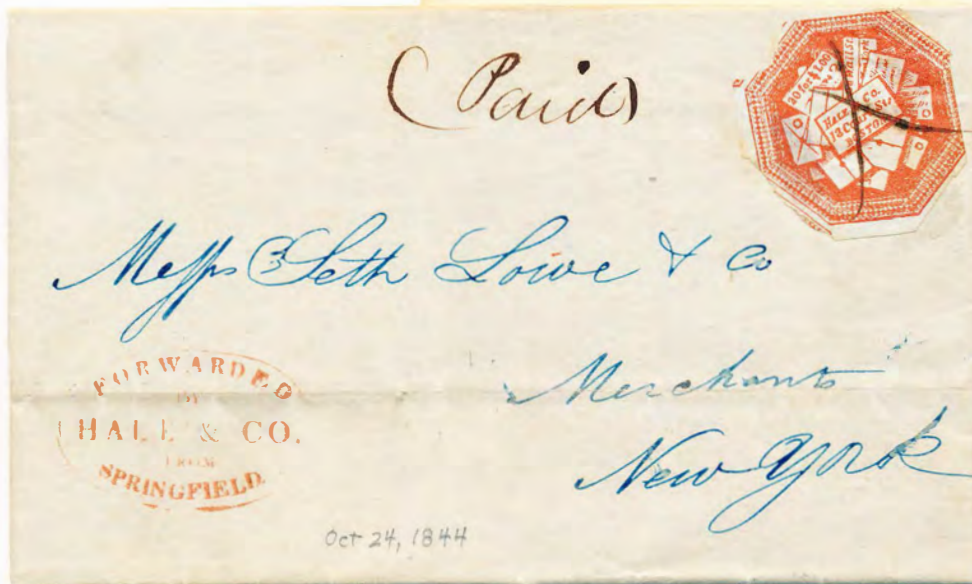 (Paid)
20 for $1.00
HALE & Co.
13 COURT St.
BOSTON
Messrs Seth Lowe & Co
Merchants
New York
FORWARDED
BY
HALE & CO.
FROM
SPRINGFIELD.
Oct 24, 1844